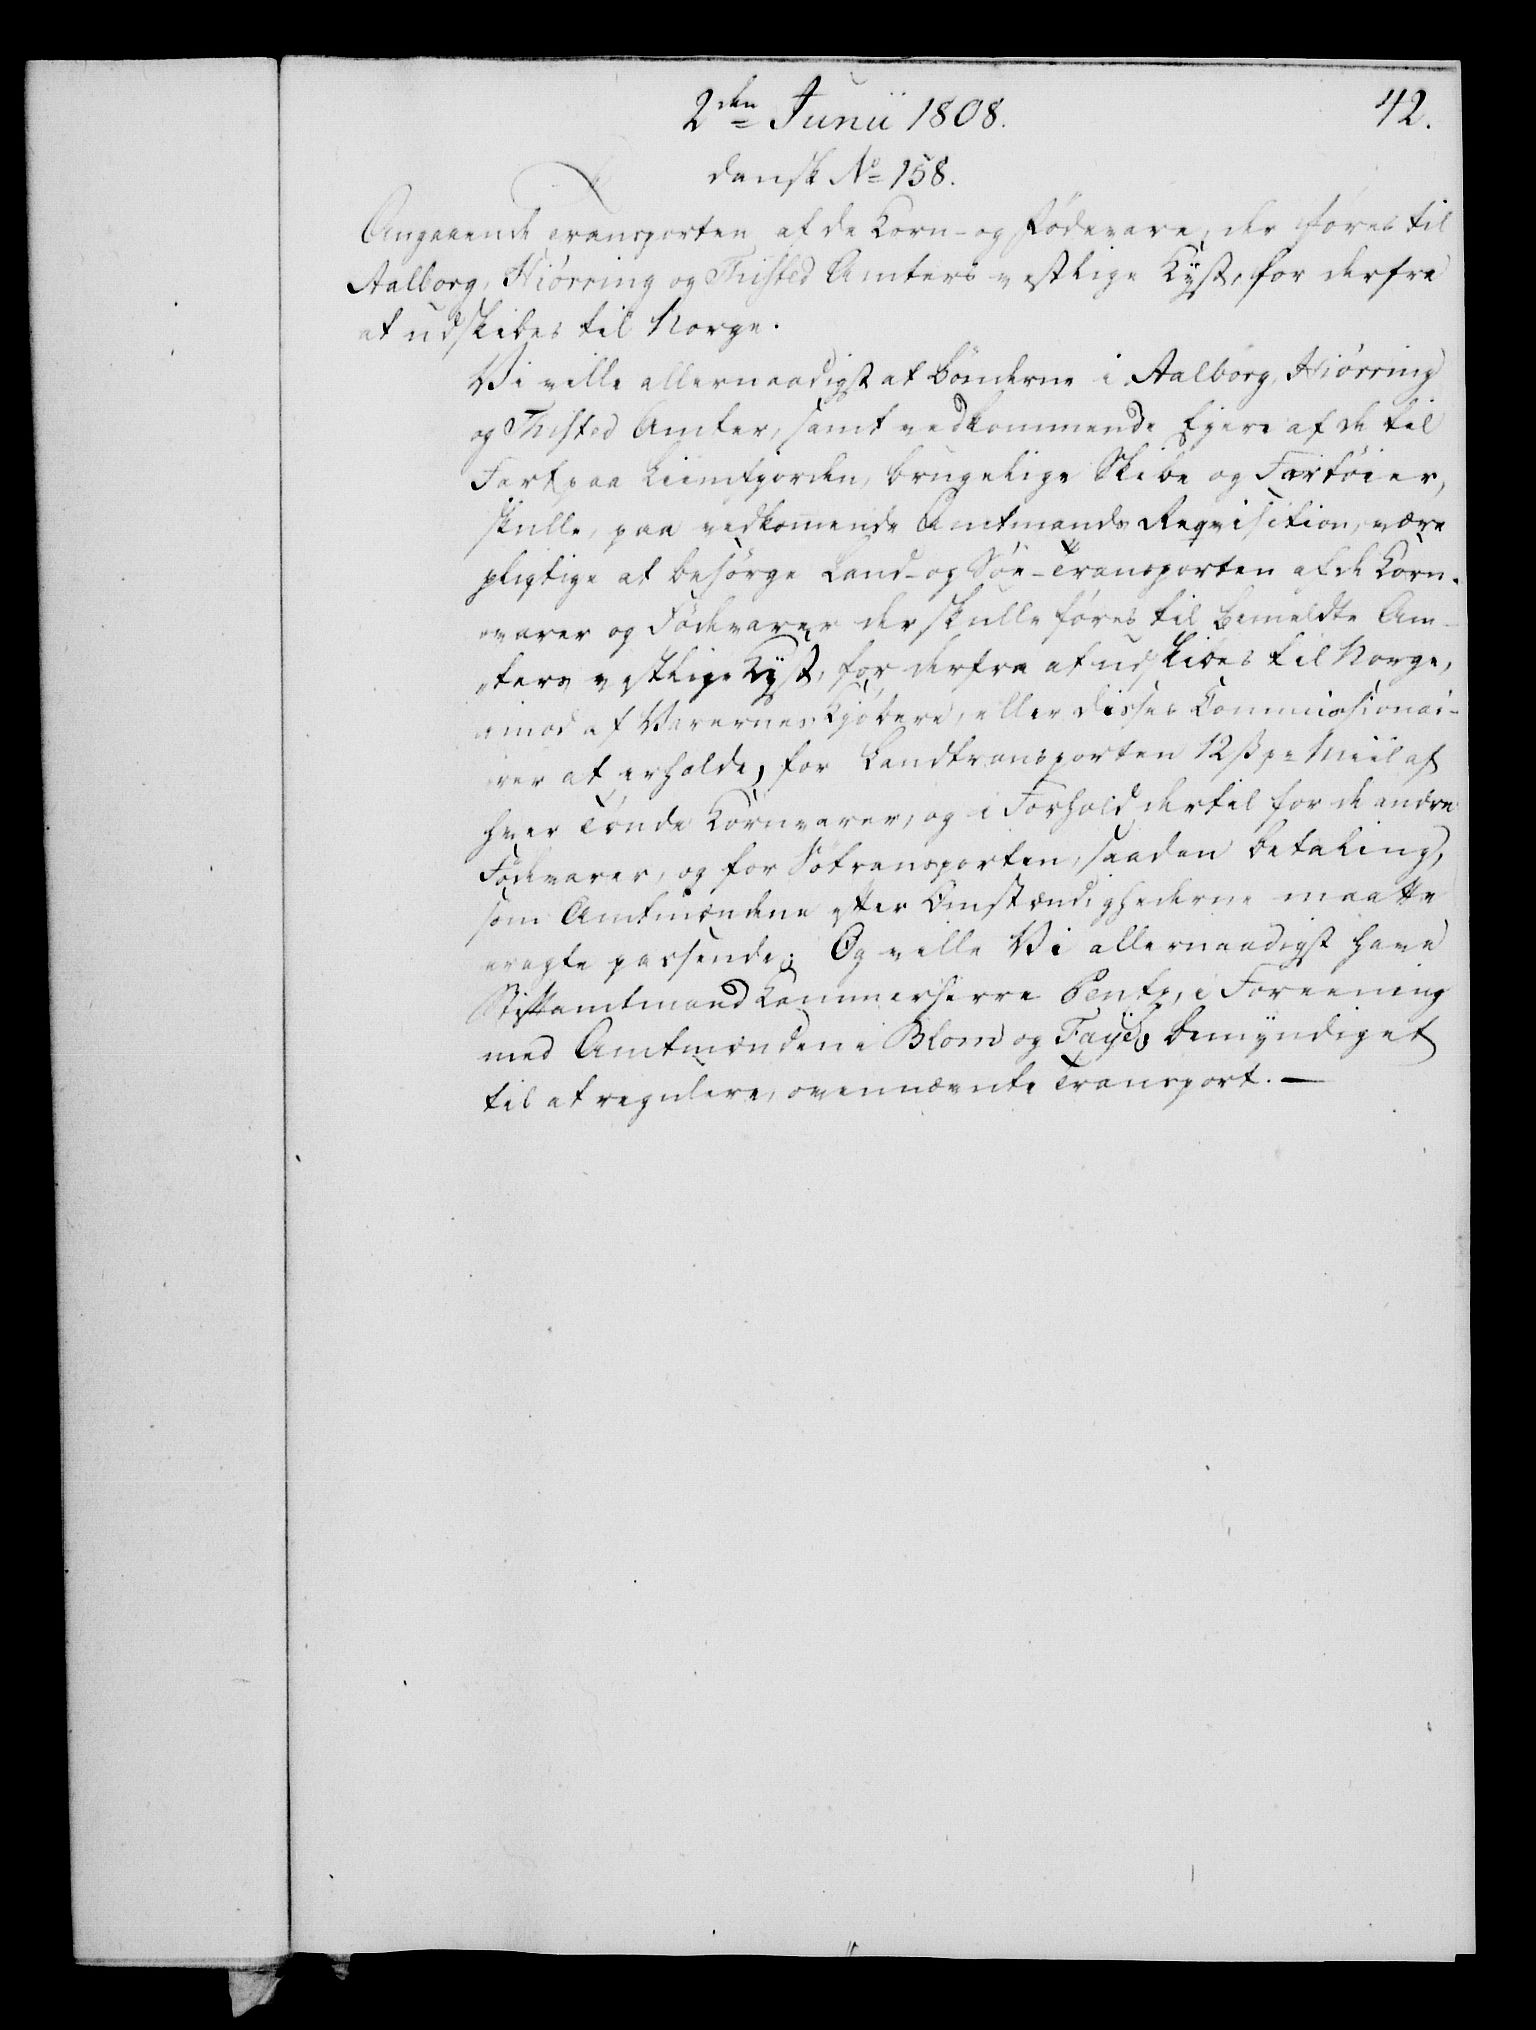 2den Junii 1808.
42.
dansk No 158.
Angaaende Transporten af de Korn- og Födevare, der föres til
Aalborg, Hiörring og Thisted Amters vestlige Kyst, for derfra
at udskibes til Norge.
Vi ville allernaadigst at Bönderne i Aalborg, Hiörring
og Thisted Amter, samt vedkommende Eiere af de til
Fart paa Liimfjorden, brugelige Skibe og Fartöier,
skulle, paa vedkomende Amtmands Requisition, være
pligtige at besörge Land- og Söe-Transporten af de Korn-
varer og Födevarer der skulle föres til bemeldte Am-
ters vestlige Kyst, for derfra at udskibes til Norge,
imod af Varernes Kjöbere, eller disses Commissionai-
rer at erholde, for Landtransporten 12 ß pr Miil af
hver Tönde Kornvarer, og i Forhold dertil for de andre
Födevarer, og for Sötransporten, saadan Betaling,
som Amtmændene efter Omstændighederne maatte
eragte passende; Og ville Vi allernaadigst have
Stiftamtmand Kammerherre Pentz, i Foreening
med Amtmændene Blom og Faÿe, bemyndiget
til at regulere, ovennævnte Transport. —